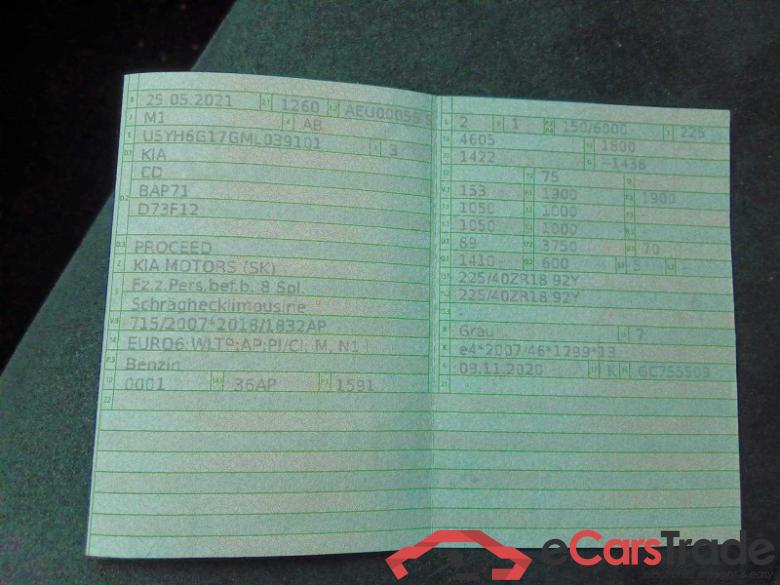 25.05.2021 1260 AEU00055
M1 AB
U5YH6G17GML039101 3
KIA
CD
BAP71
D73F12
PROCEED
KIA MOTORS (SK)
Fz.z.Pers.bef.b. 8 Spl.
Schräghecklimousine
715/2007*2018/1832AP
EURO6 WLTP;AP;PI/CI; M, N1 I
Benzin
0001 36AP 1591
2 1 150/6000 225
4605 1800
1422 -1436
75
153 1900 1900
1050 1000
1050 1000
89 3750 70
1410 600 5 -
225/40ZR18 92Y
225/40ZR18 92Y
-
Grau 7
e4*2007/46*1299*13
09.11.2020 K GC755509
eCarsTrade